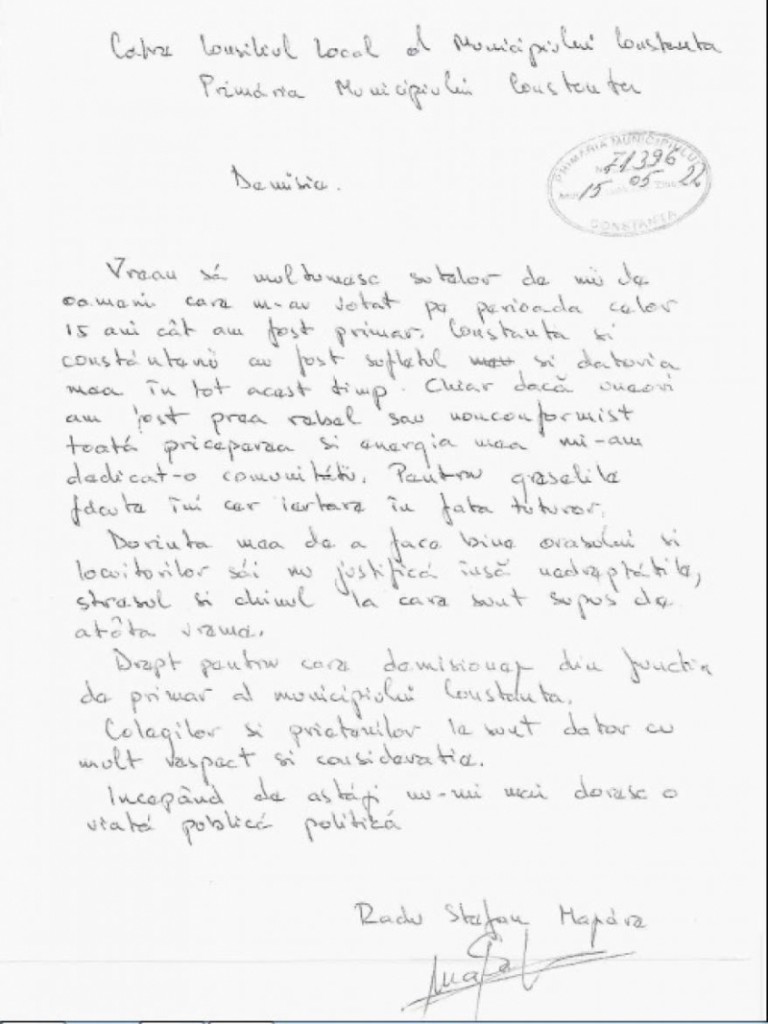 Catre Consiliul Local al Municipiului Constanta
Primăria Municipiului Constanta
PRIMARIA MUNICIPIULUI
71396
15 05
CONSTANTA
Demisie.
Vreau să multumesc sutelor de mii de
oameni care m-au votat pe perioada celor
15 ani cât am fost primar. Constanta si
constăntenii au fost sufletul si datoria
mea în tot acest timp. Chiar dacă uneori
am fost prea rebel sau nonconformist
toată priceperea si energia mea mi-am
dedicat-o comunitătii. Pentru greselile
făcute îmi cer iertare în fata tuturor.
Dorinta mea de a face bine orasului si
locuitorilor săi nu justifică însă nedreptătile,
stresul si chinul la care sunt supus de
atâta vreme.
Drept pentru care demisionez din functia
de primar al municipiului Constanta.
Colegilor si prietenilor le sunt dator cu
mult respect si consideratie.
Incepând de astăzi nu-mi mai doresc o
viată publică politică
Radu Stefan Mazăre